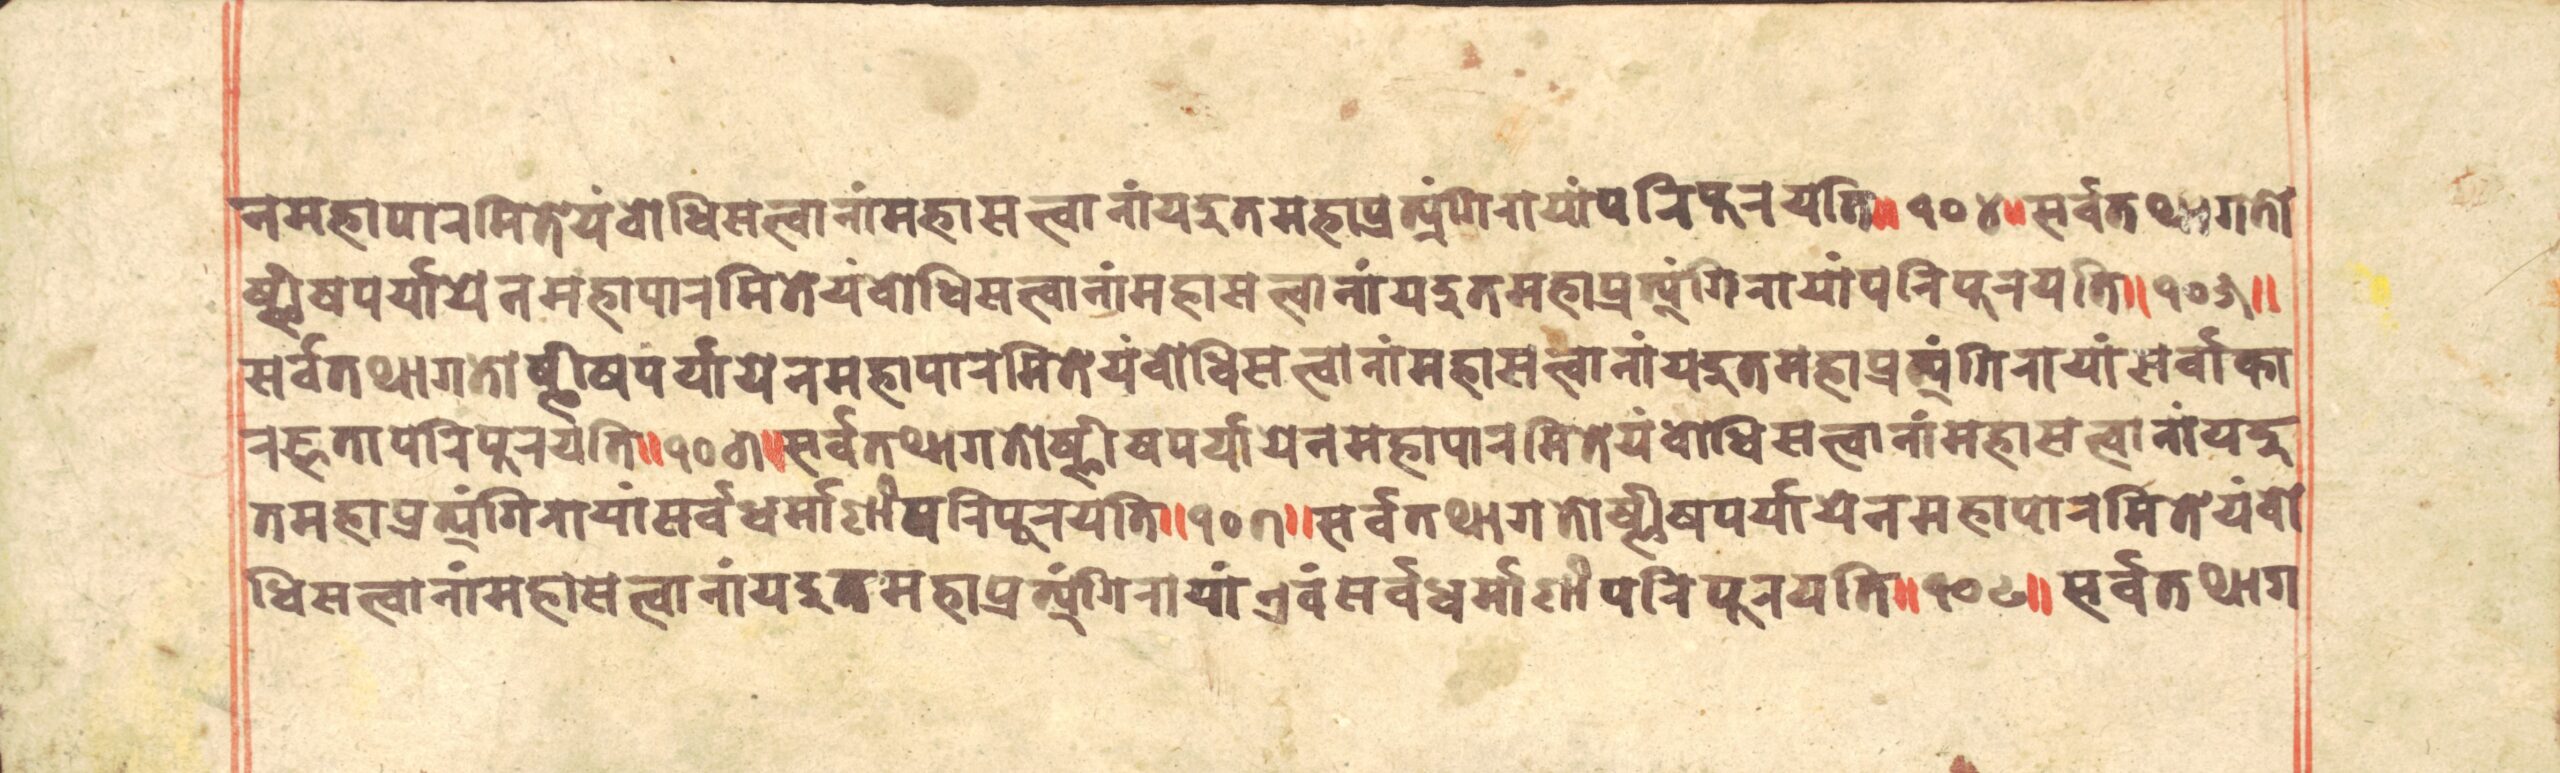 नमहापारमितेयंबोधिसत्वानांमहासत्वानांयदुतमहाप्रत्यंगिरायांपरिपूरयति॥१०४॥सर्वतथागतो
ष्णीषपर्यायेनमहापारमितेयंबोधिसत्वानांमहासत्वानांयदुतमहाप्रत्यंगिरायांपरिपूरयति॥१०५॥
सर्वतथागतोष्णीषपर्यायेनमहापारमितेयंबोधिसत्वानांमहासत्वानांयदुतमहाप्रत्यंगिरायांसर्वाका
रज्ञतापरिपूरयति॥१०६॥सर्वतथागतोष्णीषपर्यायेनमहापारमितेयंबोधिसत्वानांमहासत्वानांयदु
तमहाप्रत्यंगिरायांसर्वधर्माणांपरिपूरयति॥१०७॥सर्वतथागतोष्णीषपर्यायेनमहापारमितेयंबो
धिसत्वानांमहासत्वानांयदुतमहाप्रत्यंगिरायांएवंसर्वधर्माणांपरिपूरयति॥१०८॥सर्वतथाग